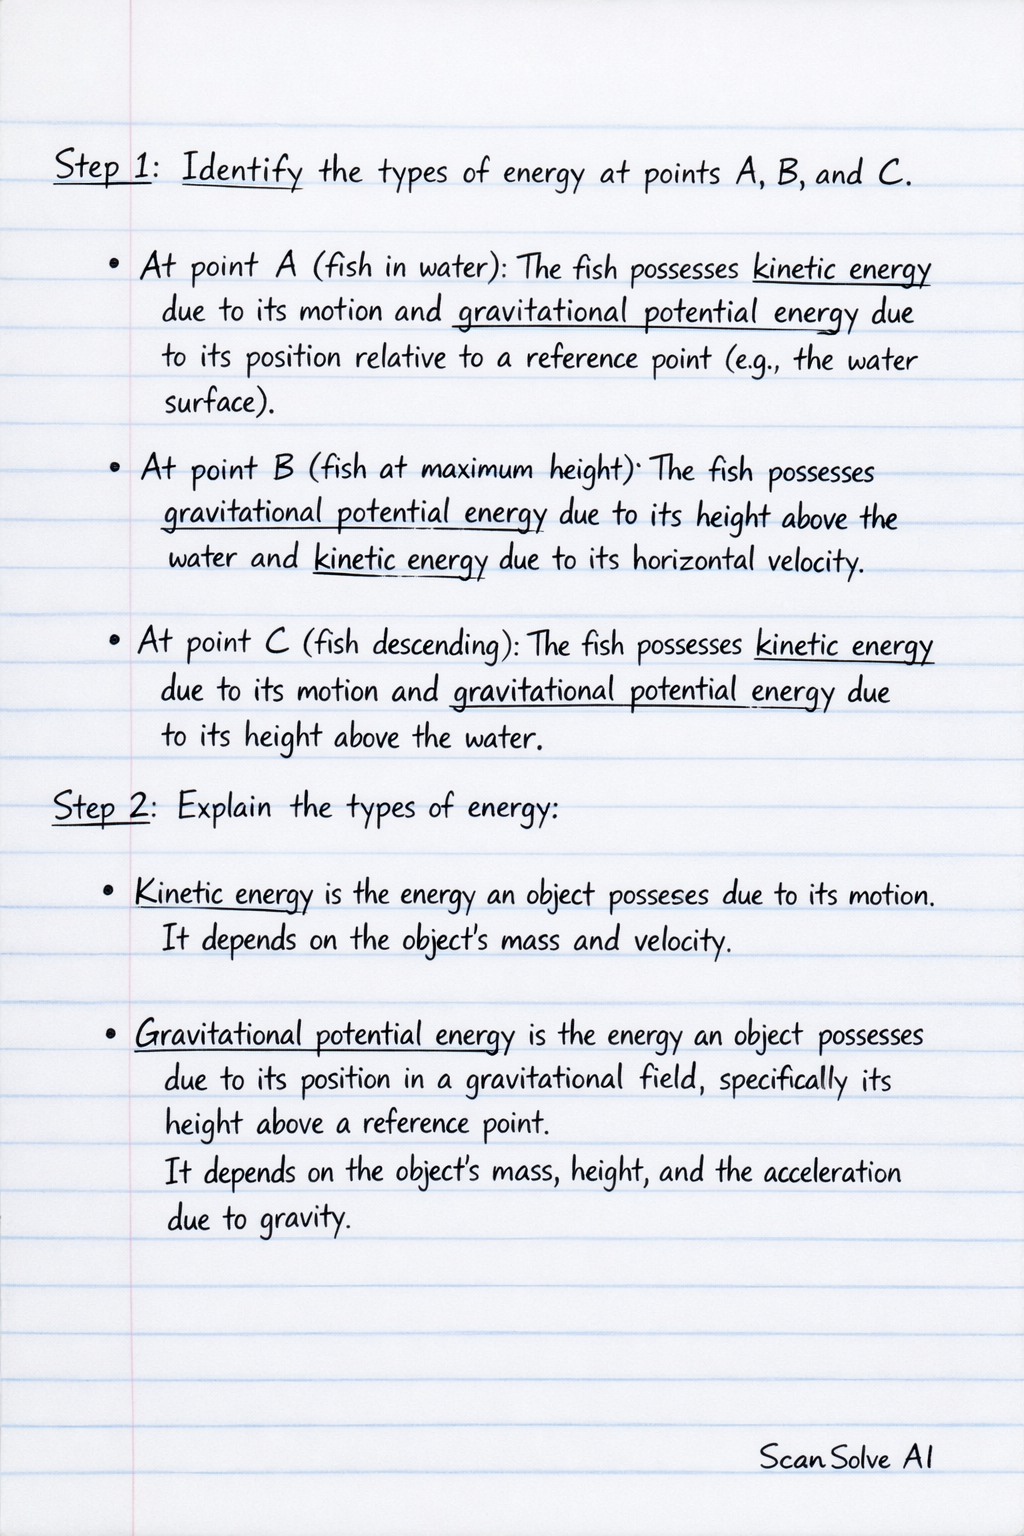 Step 1: Identify the types of energy at points A, B, and C.
• At point A (fish in water): The fish possesses kinetic energy
due to its motion and gravitational potential energy due
to its position relative to a reference point (e.g., the water
surface).
• At point B (fish at maximum height)· The fish possesses
gravitational potential energy due to its height above the
water and kinetic energy due to its horizontal velocity.
• At point C (fish descending): The fish possesses kinetic energy
due to its motion and gravitational potential energy due
to its height above the water.
Step 2: Explain the types of energy:
• Kinetic energy is the energy an object posseses due to its motion.
It depends on the object's mass and velocity.
• Gravitational potential energy is the energy an object possesses
due to its position in a gravitational field, specifically its
height above a reference point.
It depends on the object's mass, height, and the acceleration
due to gravity.
ScanSolve AI